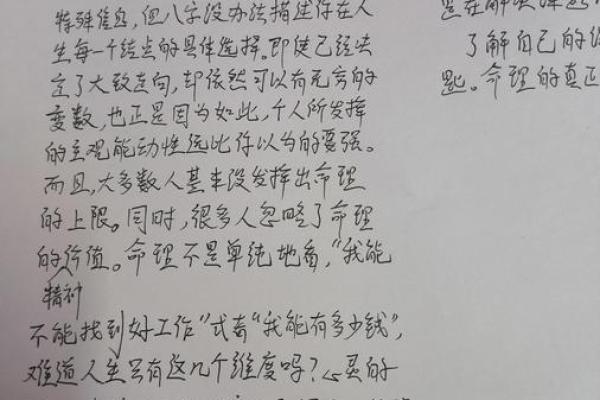 特殊准的,但八字没办法描述你在人
生每一个结点的具体选择。即使已经决
定了大致走向,却依然可以有无穷的
变数,也正是因为如此,个人所发挥
的主观能动性远比你以为的要强。
而且,大多数人基本没发挥出命理
的上限。同时,很多人忽略了命理
的价值。命理不是单纯地看,“我能
精神
不能找到好工作”或者“我能有多少钱”,
难道人生只有这几个维度吗?心灵的
是在解决
了解自己的
匙。命理的真正